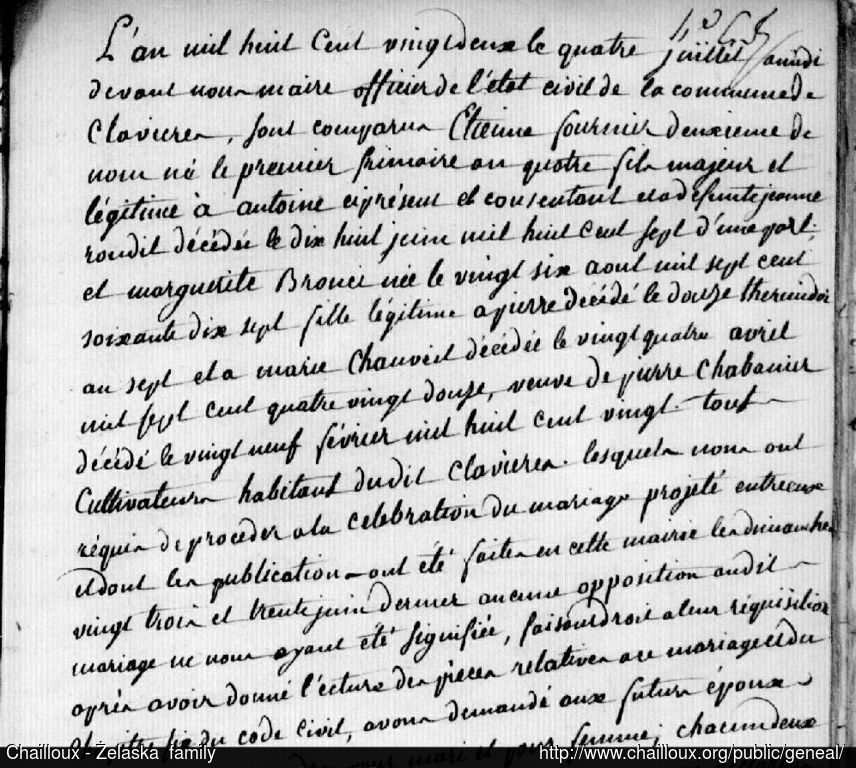 L'an mil huit Cent vingtdeux le quatre juillet
devant nous maire officier de l'état civil de la commune de
Clavieres, sont comparus Etienne fournier deuxieme de
nom né le premier frimaire an quatre fils majeur et
légitime à antoine ci présent et consentant et a défunte jeanne
rondil décédée le dix huit juin mil huit cent sept d'une part.
et marguerite Bronci née le vingt six aout mil sept cent
soixante dix sept fille légitime a pierre décédé le douze thermidor
an sept et a marie Chauveil décédée le vingt quatre avril
mil sept cent quatre vingt douze, veuve de pierre Chabanier
décédé le vingt neuf février mil huit cent vingt. tous
Cultivateurs habitans dudit Clavieres. lesquels nous ont
réquis de proceder a la celebration du mariage projeté entreeux
et dont les publications ont été faites en cette mairie les dimanches
vingt trois et trente juin dernier aucune opposition audit
mariage ne nous ayant été signifiée, faisant droit a leur réquisition
après avoir donné l'écture des pièces relatives au mariage et du
chapitre six du code civil, avons demandé aux futurs époux
mari et pour femme; chacun deux
Chailloux - Żelaska family
http://www.chailloux.org/public/geneal/